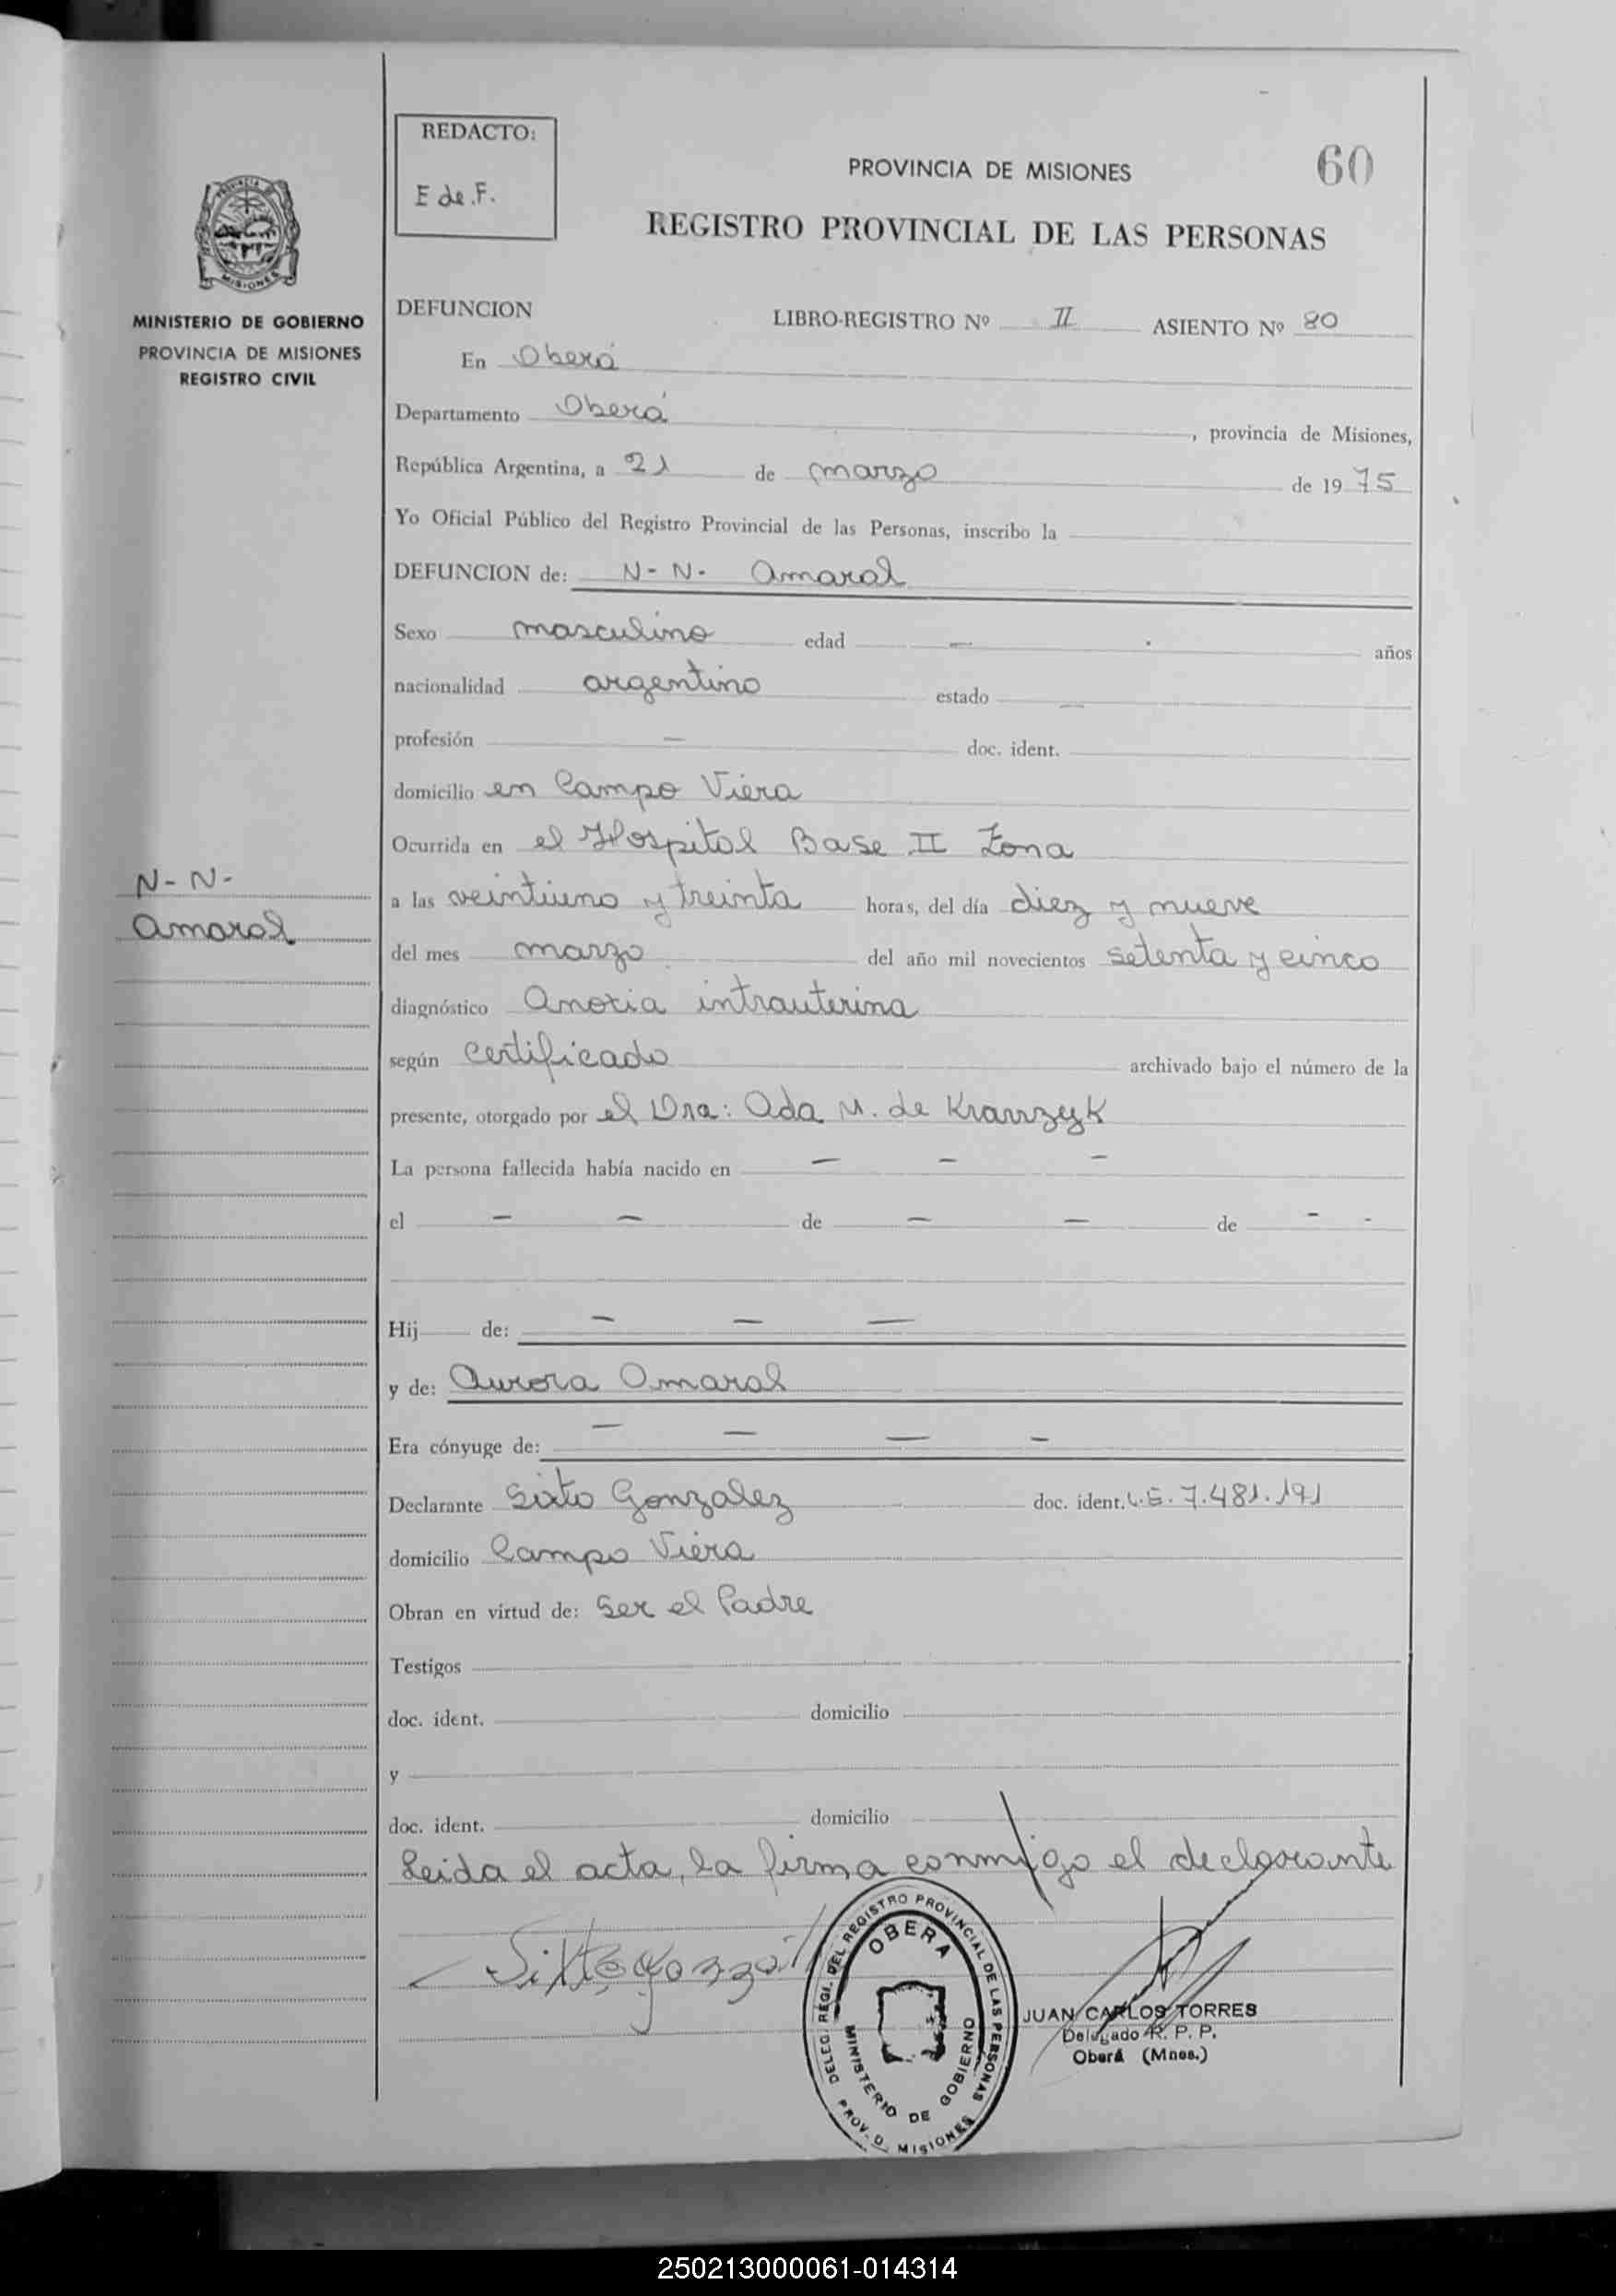 REDACTO:
E de F.
60
PROVINCIA DE MISIONES
REGISTRO PROVINCIAL DE LAS PERSONAS
PROVINCIA DE
MISIONES
MINISTERIO DE GOBIERNO
PROVINCIA DE MISIONES
REGISTRO CIVIL
DEFUNCION LIBRO-REGISTRO Nº II ASIENTO Nº 80
En Oberá
Departamento Oberá, provincia de Misiones,
República Argentina, a 21 de marzo de 1975
Yo Oficial Público del Registro Provincial de las Personas, inscribo la
DEFUNCION de: N-N- Amaral
Sexo masculino edad — años
nacionalidad argentino estado —
profesión — doc. ident.
domicilio en Campo Viera
Ocurrida en el Hospital Base II Zona
N-N-
Amaral
a las veintiuno y treinta horas, del día diez y nueve
del mes marzo del año mil novecientos setenta y cinco
diagnóstico Anoxia intrauterina
según certificado archivado bajo el número de la
presente, otorgado por el Dra: Ada M. de
La persona fallecida había nacido en — — —
el — — de — — de - -
Hij de: — — —
y de: Aurora Amaral
Era cónyuge de: — — — -
Declarante Sixto Gonzalez doc. ident. L.E. 7.481.191
domicilio Campo Viera
Obran en virtud de: Ser el Padre
Testigos
doc. ident. domicilio
y
doc. ident. domicilio
Leida el acta, la firma conmigo el declarante
DELEG. REGI. DEL REGISTRO PROVINCIAL DE LAS PERSONAS
OBERA
MINISTERIO DE GOBIERNO
PROV. D. MISIONES
JUAN CARLOS TORRES
Delegado R. P. P.
Oberá (Mnes.)
250213000061-014314